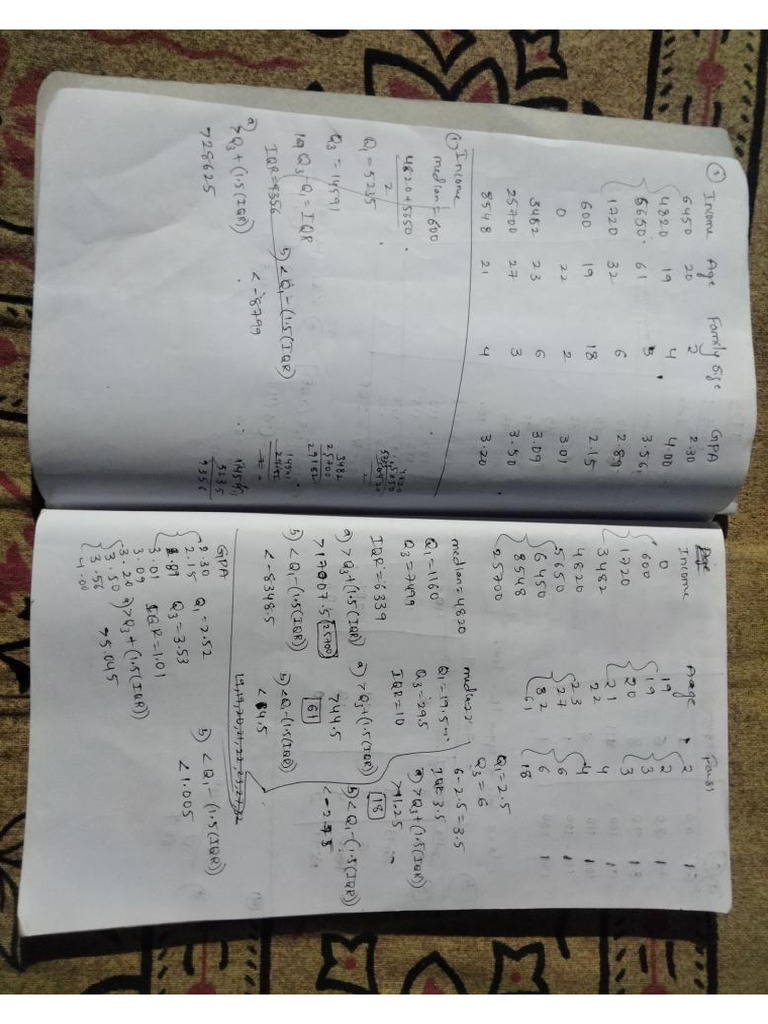 ① Income Age Family Size GPA
6450 20 2 2.30
4820 19 4 4.00
5650 61 5 3.56
1720 32 6 2.89
600 19 18 2.15
0 22 2 3.01
3482 23 6 3.09
25700 27 3 3.50
8548 21 4 3.20
① Income
median = 600
4820+5650
2
Q1 = 5235
Q3 = 14591
Q3 - Q1 = IQR
IQR = 9356
a) >Q3 + (1.5(IQR)
>28625
b) <Q1 - (1.5(IQR)
< -8799
3482
25700
29182
14591
5235
9356
Income
0
600
1720
3482
4820
5650
6450
8548
25700
median = 4820
Q1 = 1160
Q3 = 7499
IQR = 6339
a) >Q3 + (1.5(IQR)
>17007.5 25700
b) <Q1 - (1.5(IQR)
< -8348.5
Age
19
19
20
21
22
23
27
32
61
Q1 = 19.5
Q3 = 29.5
IQR = 10
a) >Q3 + (1.5(IQR)
>44.5
61
b) <Q1 - (1.5(IQR)
<4.5
19,19,20,21,22,23,27,32
2
2
3
3
4
4
6
6
6
18
Q1 = 2.5
Q3 = 6
6-2.5 = 3.5
IQR = 3.5
a) >Q3 + (1.5(IQR)
>11.25
18
b) <Q1 - (1.5(IQR)
GPA
2.30
2.15
2.89
3.01
3.09
3.20
3.50
3.56
4.00
Q1 = 2.52
Q3 = 3.53
IQR = 1.01
a) >Q3 + (1.5(IQR)
>5.045
b) <Q1 - (1.5(IQR)
<1.005